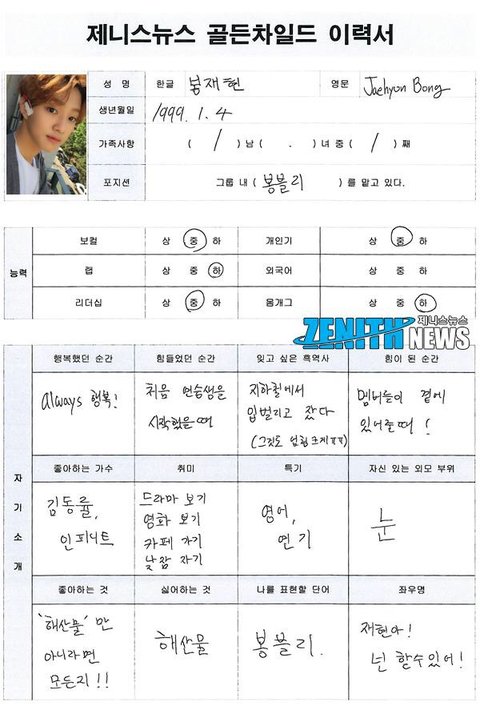 제니스뉴스 골든차일드 이력서
성 명 한글 봉재현 영문 Jaehyun Bong
생년월일 1999. 1. 4
가족사항 ( 1 )남 ( . )녀 중 ( 1 )째
포지션 그룹 내 ( 봉블리 )를 맡고 있다.
능력
보컬 상 중 하 개인기 상 중 하
랩 상 중 하 외국어 상 중 하
리더십 상 중 하 몸개그 상 중 하
ZENITH NEWS 제니스뉴스
자기소개
행복했던 순간 힘들었던 순간 잊고 싶은 흑역사 힘이 된 순간
always 행복!
처음 연습생을
시작했을때
지하철에서
입벌리고 잤다
(그것도 엄청크게ㅠㅠ)
멤버들이 곁에
있어줄때!
좋아하는 가수 취미 특기 자신 있는 외모 부위
김동률,
인피니트
드라마 보기
영화 보기
카페 가기
낮잠 자기
영어,
연기
눈
좋아하는 것 싫어하는 것 나를 표현할 단어 좌우명
'해산물'만
아니라면
모든지!!
해산물
봉블리.
재현아!
넌 할수있어!